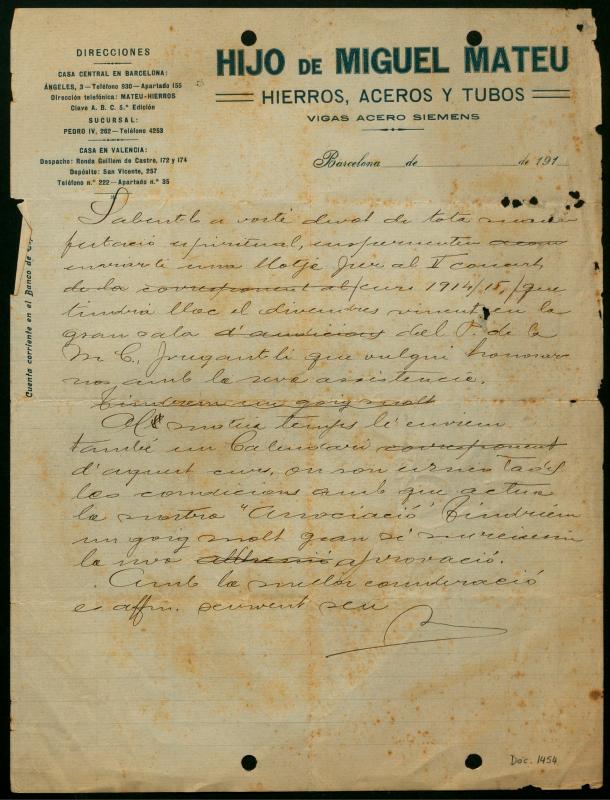 DIRECCIONES
CASA CENTRAL EN BARCELONA:
ÁNGELES, 3 — Teléfono 930 — Apartado 155
Dirección telefónica: MATEU-HIERROS
Clave A. B. C. 5.ª Edición
SUCURSAL:
PEDRO IV, 262 — Teléfono 4253
CASA EN VALENCIA:
Despacho: Ronda Guillem de Castro, 172 y 174
Depósito: San Vicente, 257
Teléfono n.º 222 — Apartado n.º 35
HIJO DE MIGUEL MATEU
HIERROS, ACEROS Y TUBOS
VIGAS ACERO SIEMENS
Barcelona de de 191
Cuenta corriente en el Banco de
Sabentlo a vosté devot de tota
espiritual, ens permetem
enviarli una llotje per al II concert
de la correspanent al curs 1914/15, que
tindrá lloc el divendres vinent en la
gran sala d'audicions del P. de la
M. C., pregantli que vulgui honorar
nos amb la seva assistencia.
Tindrem un goig molt
Al mateix temps li enviem
també un Calendari corresponent
d'aquest curs, on son totes
les condicions amb que actua
la nostra "Associació" Tindriem
un goig molt gran si mereixessim
la seva aprovació.
Amb la millor consideració
es affm. servent seu
Doc. 1454